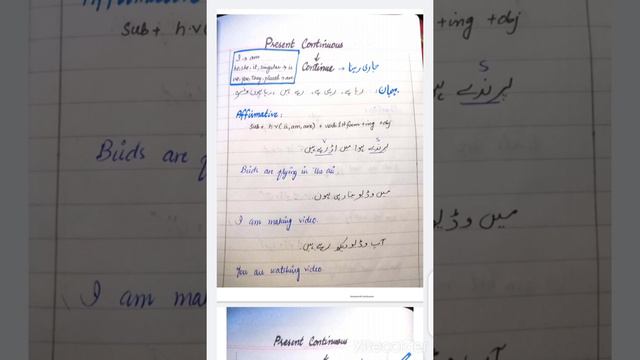 Present Continuous
Continue → جاری رہنا
I → am
he, she, it, singular → is
we, you, they, plural → are
پہچان: رہا ہے، رہی ہے، رہے ہیں، رہا ہوں
Affirmative:
Sub + h.v (is, am, are) + verb 1st form + ing + obj
پرندے ہوا میں اڑ رہے ہیں۔
Birds are flying in the air
میں وڈیو بنا رہی ہوں۔
I am making video.
آپ وڈیو دیکھ رہے ہیں۔
You are watching video.
Present Continuous
Present Continuous
Sub + h.v
+ing +obj
پرندے
Birds are
میں وڈیو
I am
XRecorder